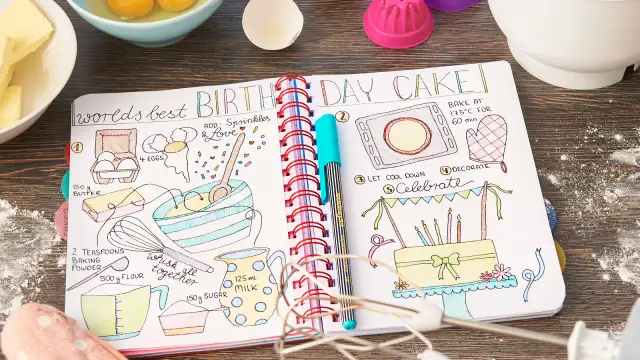 worlds best BIRTHDAY CAKE!
1
4 EGGS
ADD Sprinkles
& Love
150g
BUTTER
2 TEASPOONS
BAKING
POWDER
whisk all
together
500g FLOUR
150g SUGAR
125ml
MILK
2
BAKE AT
175°C FOR
60 min
3 LET COOL DOWN
4 DECORATE
5 Celebrate